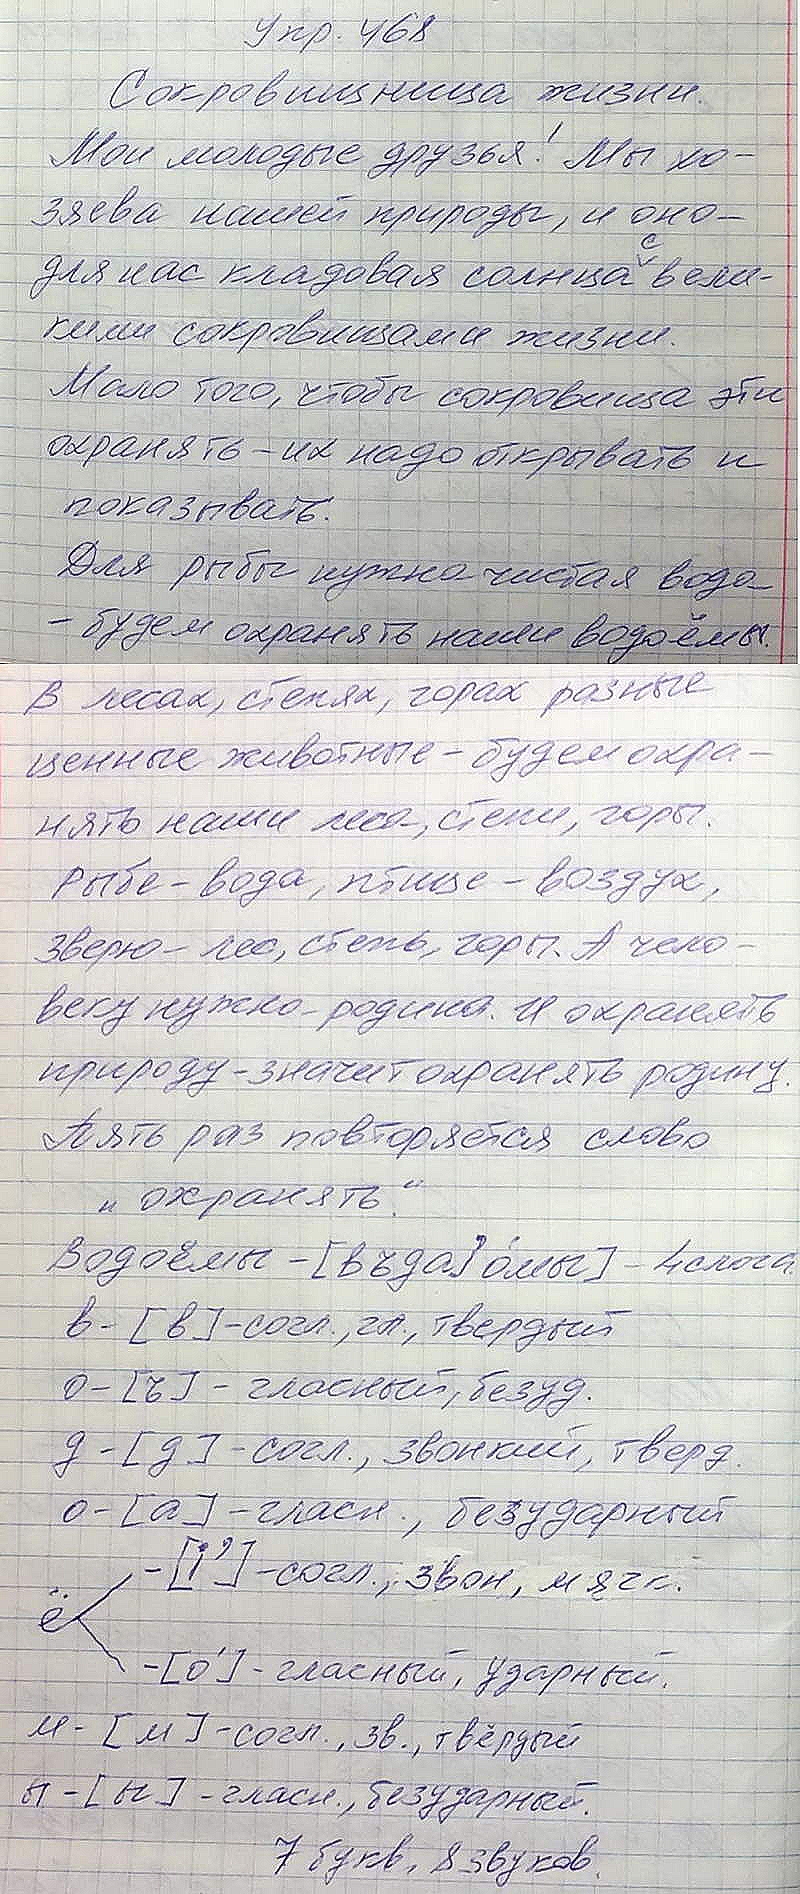 Упр. 468
Сокровищница жизни.
Мои молодые друзья! Мы хо-
зяева нашей природы, и оно-
для нас кладовая солнца с вели-
кими сокровищами жизни.
Мало того, чтобы сокровища эти
охранять - их надо открывать и
показывать.
Для рыбы нужна чистая вода
- будем охранять наши водоёмы.
В лесах, степях, горах разные
ценные животные - будем охра-
нять наши леса, степи, горы.
Рыбе - вода, птице - воздух,
зверю - лес, степь, горы. А чело-
веку нужна родина. И охранять
природу - значит охранять родину.
Пять раз повторяется слово
„охранять."
Водоёмы - [въдаj’óмы] - 4 слога.
в - [в] - согл., гл., твердый
о - [ъ] - гласный, безуд.
д - [д] - согл., звонкий, тверд.
о - [а] - гласн., безударный
- [j’] - согл., звон, мягк.
ё
- [о́] - гласный, ударный.
м - [м] - согл., зв., твёрдый
ы - [ы] - гласн., безударный.
7 букв, 8 звуков.